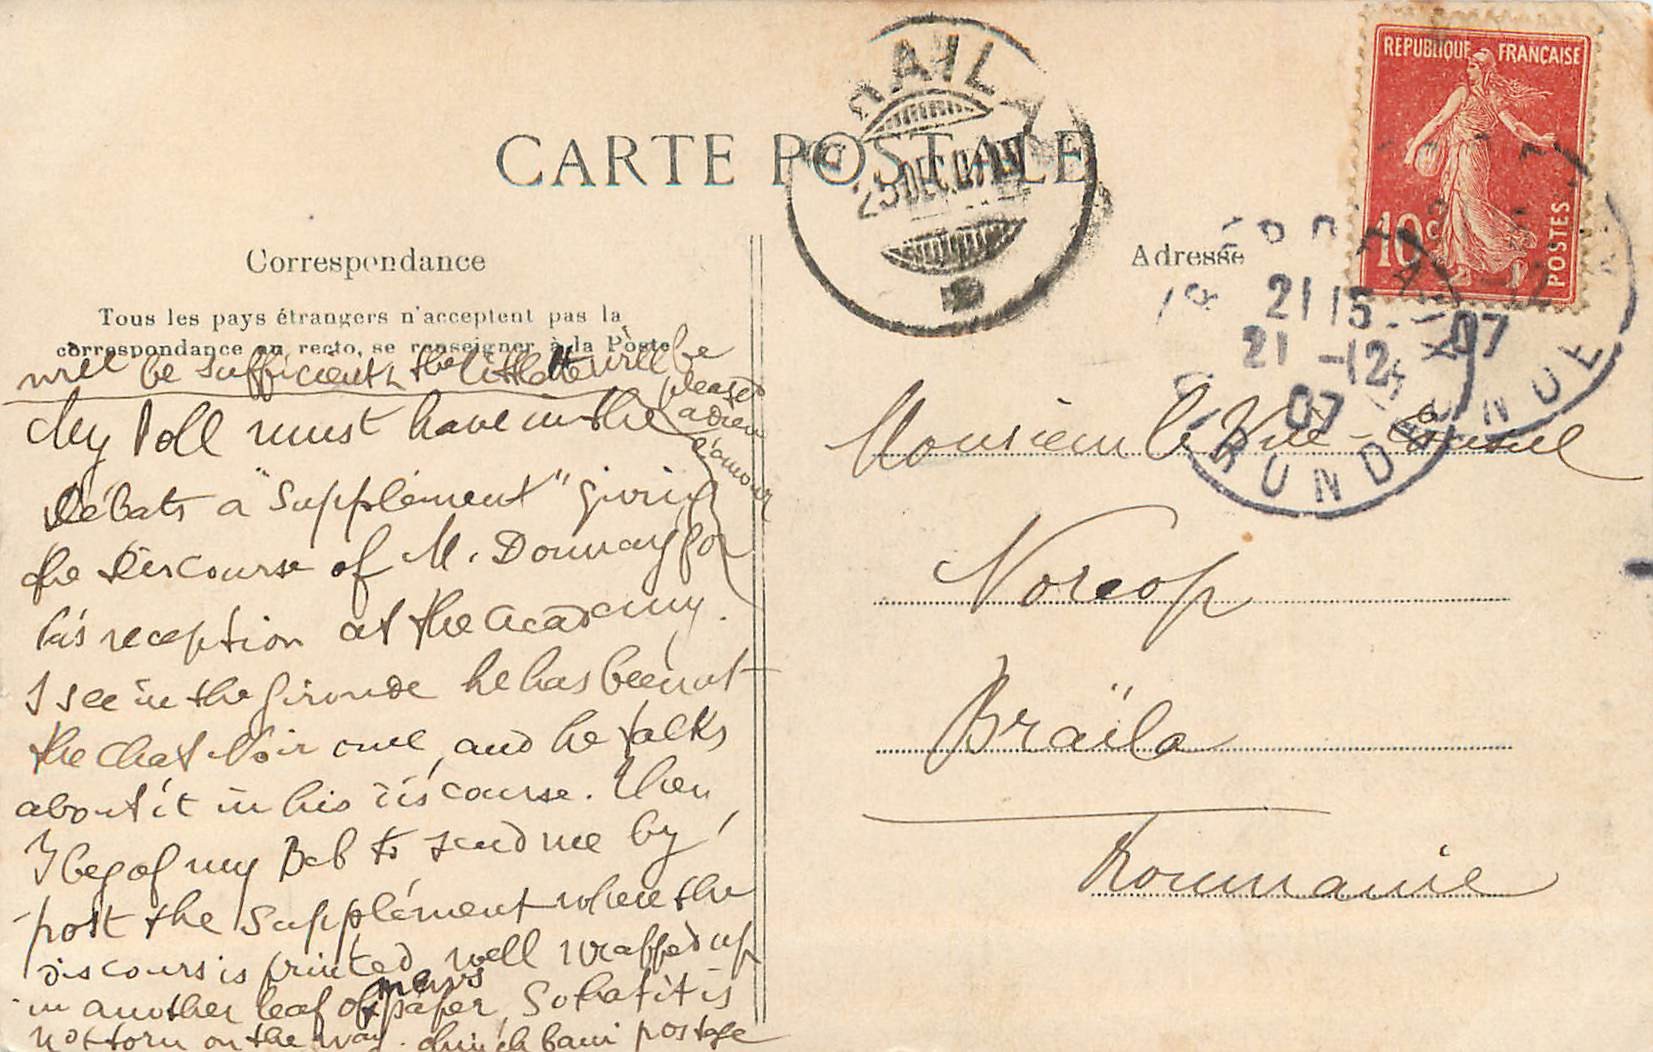 CARTE POSTALE
Correspondance
Adresse
Tous les pays étrangers n'acceptent pas la
correspondance au recto, se renseigner à la Poste
BRAILA
25 DEC. 07
REPUBLIQUE FRANÇAISE
10c
POSTES
21 15
21 -12
07
-12
07
GIRONDE
GIRONDE
My Poll must have in the
Débats a "Supplément" giving
the discourse of M. Donnay for
his reception at the academy.
I see in the Gironde he has been at
the Chat Noir one, and he talks
about it in his discourse. Then
I beg of my Bob to send me by
post the Supplément when the
discours is printed, well wrapped up
in another leaf of news paper, So that it is
not torn on the way. bani postage
will be sufficient, the little will be
pleased
adieu
l'amour
Monsieur le Vice-Consul
Norcop
Braïla
Roumanie